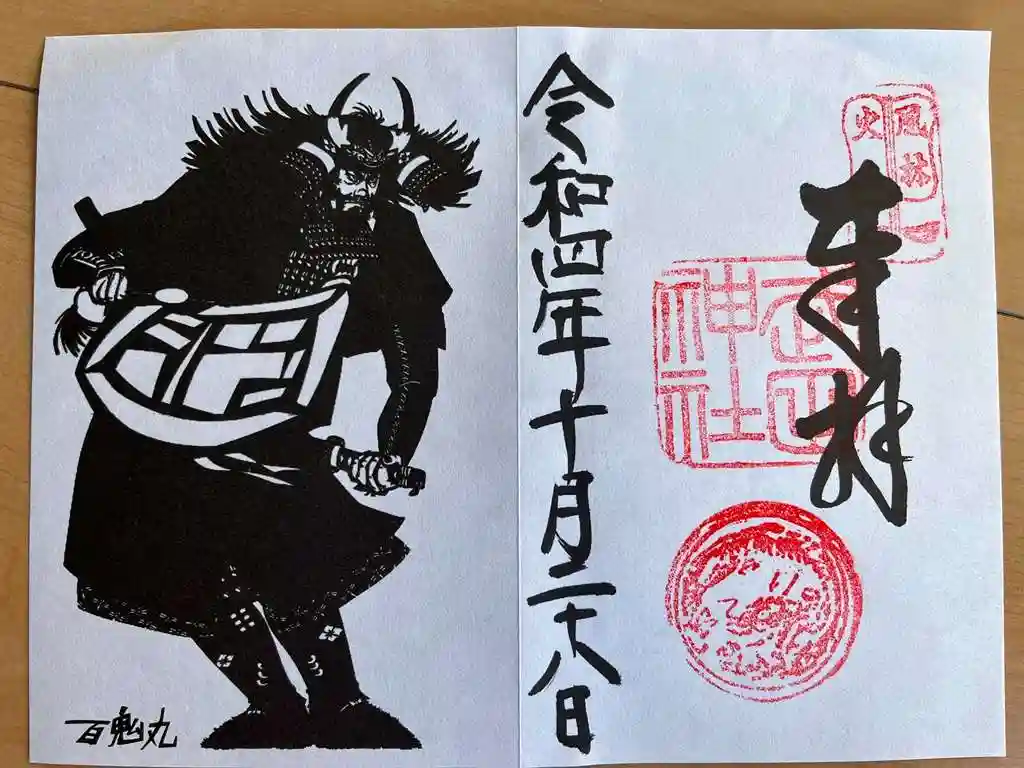 奉拝
風林
火
武田
神社
令和四年十月二十八日
百鬼丸